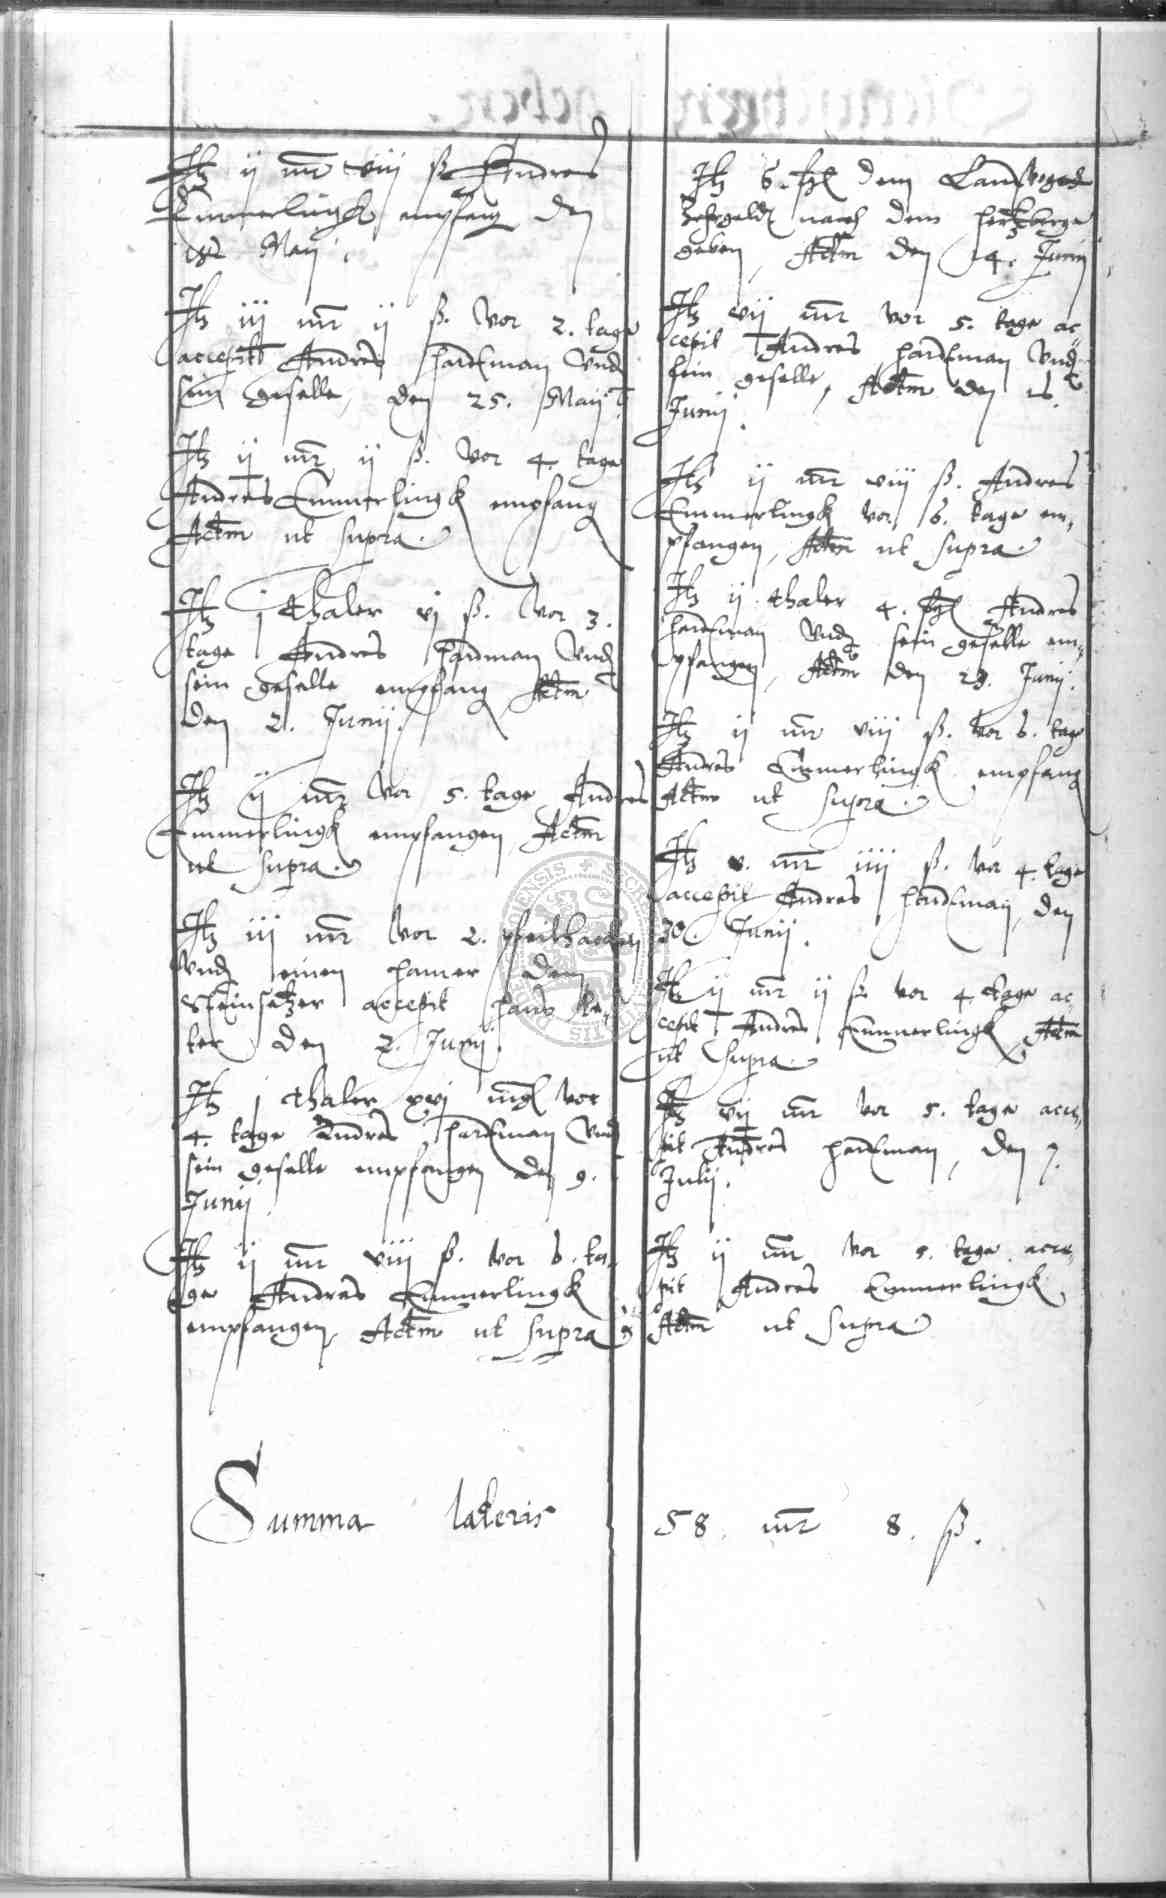 Itz ij mr viij ß Andres
Emmerlingk empfang den
18 Maij.
Itz iij mr ij ß. vor 2. tage
accepit Andres Hardman vnd
sein geselle, den 25. Maij
Itz ij mr ij ß. vor 4. tage
Andres Emmerlingk empfang
Actm ut supra.
Itz j thaler vj ß. vor 3.
tage Andres Hardman vnd
sein geselle empfang Actm
den 2. Junij.
Itz ij mr vor 5. tage Andres
Emmerlingk empfangen Actm
ut supra.
Itz iij mr vor 2.
vnd einen hamer dem
Steinsetzer accepit Hans
den 2. Junij.
Itz j thaler xvj mgl vor
4. tage Andres Hardman vnd
sein geselle empfangen den 9.
Junij
Itz ij mr viij ß. vor 6. ta,
ge Andres Emmerlingk
empfangen, Actm ut supra
Itz 6. dem Landvoged
Zehrgeldt nach dem Hertzberge
geben, Actm den 14. Junij
Itz vij mr vor 5. tage ac,
cepit Andres Hardman vnd
sein geselle, Actm den 16.
Junij.
Itz ij mr viij ß. Andres
Emmerlingk vor 6. tage em,
pfangen, Actm ut supra.
Itz ij thaler 4. Andres
Hardman vnd sein geselle em,
pfangen, Actm den 23. Junij.
Itz ij mr viij ß. vor 6. tage
Andres Emmerlingk empfang
Actm ut supra.
Itz v. mr iiij ß. vor 4. tage
accepit Andres Hardman, den
30. Junij.
Itz ij mr ij ß vor 4 tage ac,
cepit Andres Emmerlingk, Actm
ut supra.
Itz vij mr vor 5. tage acce,
pit Andres Hardman, den 7.
Julij.
Itz ij mr vor 5. tage acce,
pit Andres Emmerlingk
Actm ut supra
Summa lateris 58. mr 8. ß.